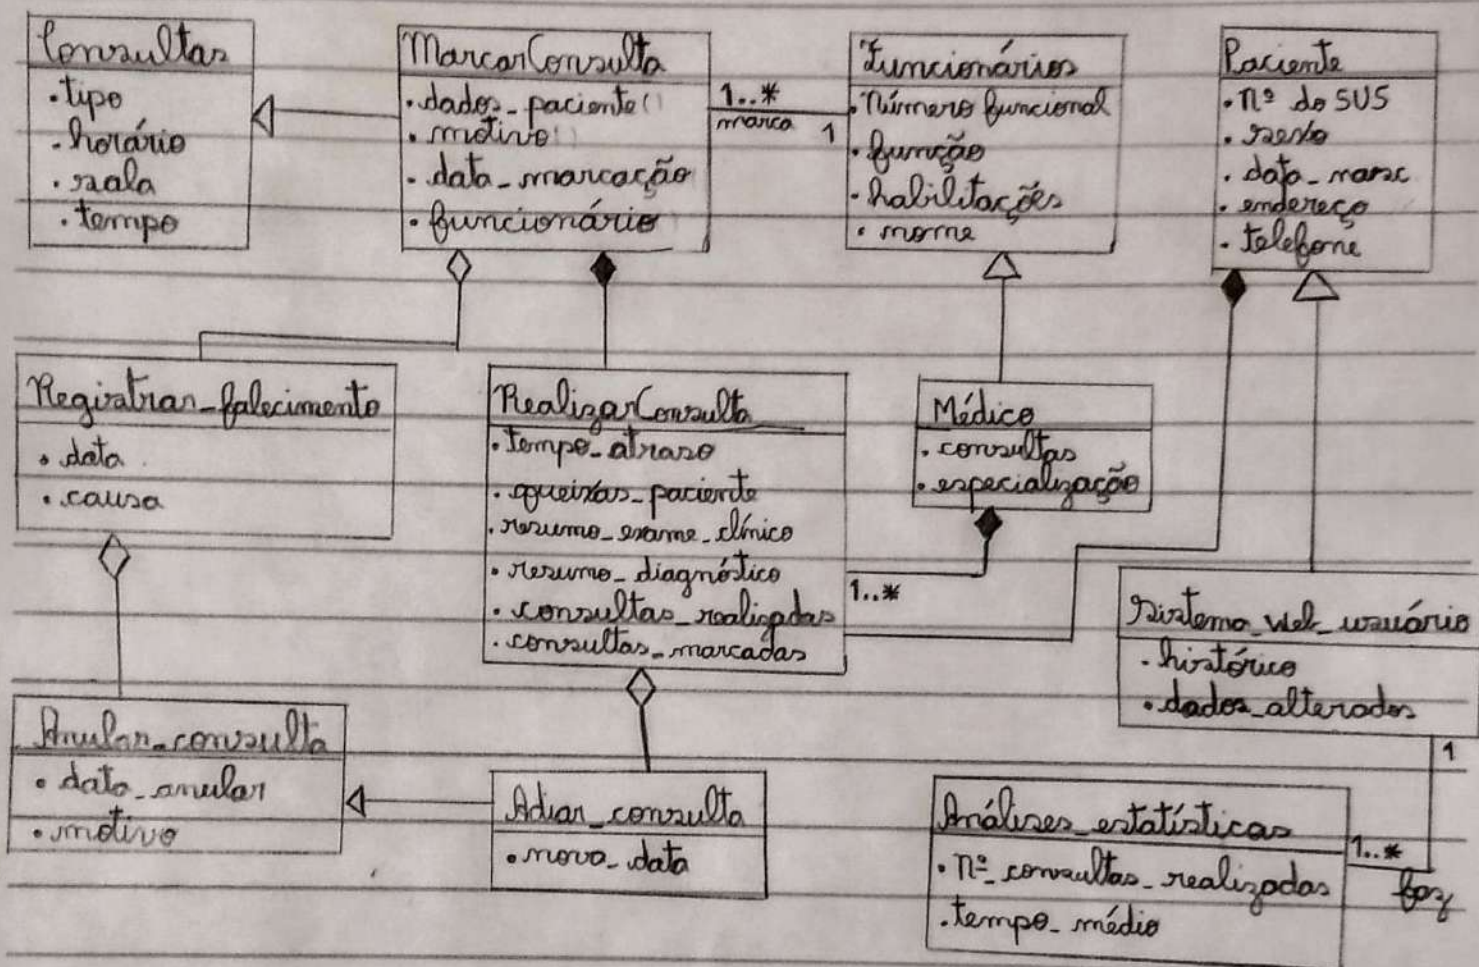 Consultas
• tipo
• horário
• sala
• tempo
MarcarConsulta
• dados_paciente()
• motivo()
• data_marcação
• funcionário
1..*
marca
1
Funcionários
• Número funcional
• função
• habilitações
• nome
Paciente
• Nº do SUS
• sexo
• data_nasc
• endereço
• telefone
Registrar_falecimento
• data
• causa
RealizarConsulta
• tempo_atraso
• queixas_paciente
• resumo_exame_clínico
• resumo_diagnóstico
• consultas_realizadas
• consultas_marcadas
Médico
• consultas
• especialização
1..*
Sistema_web_usuário
• histórico
• dados_alterados
1
Anular_consulta
• data_anular
• motivo
Adiar_consulta
• nova_data
Análises_estatísticas
• Nº_consultas_realizadas
• tempo_médio
1..*
faz